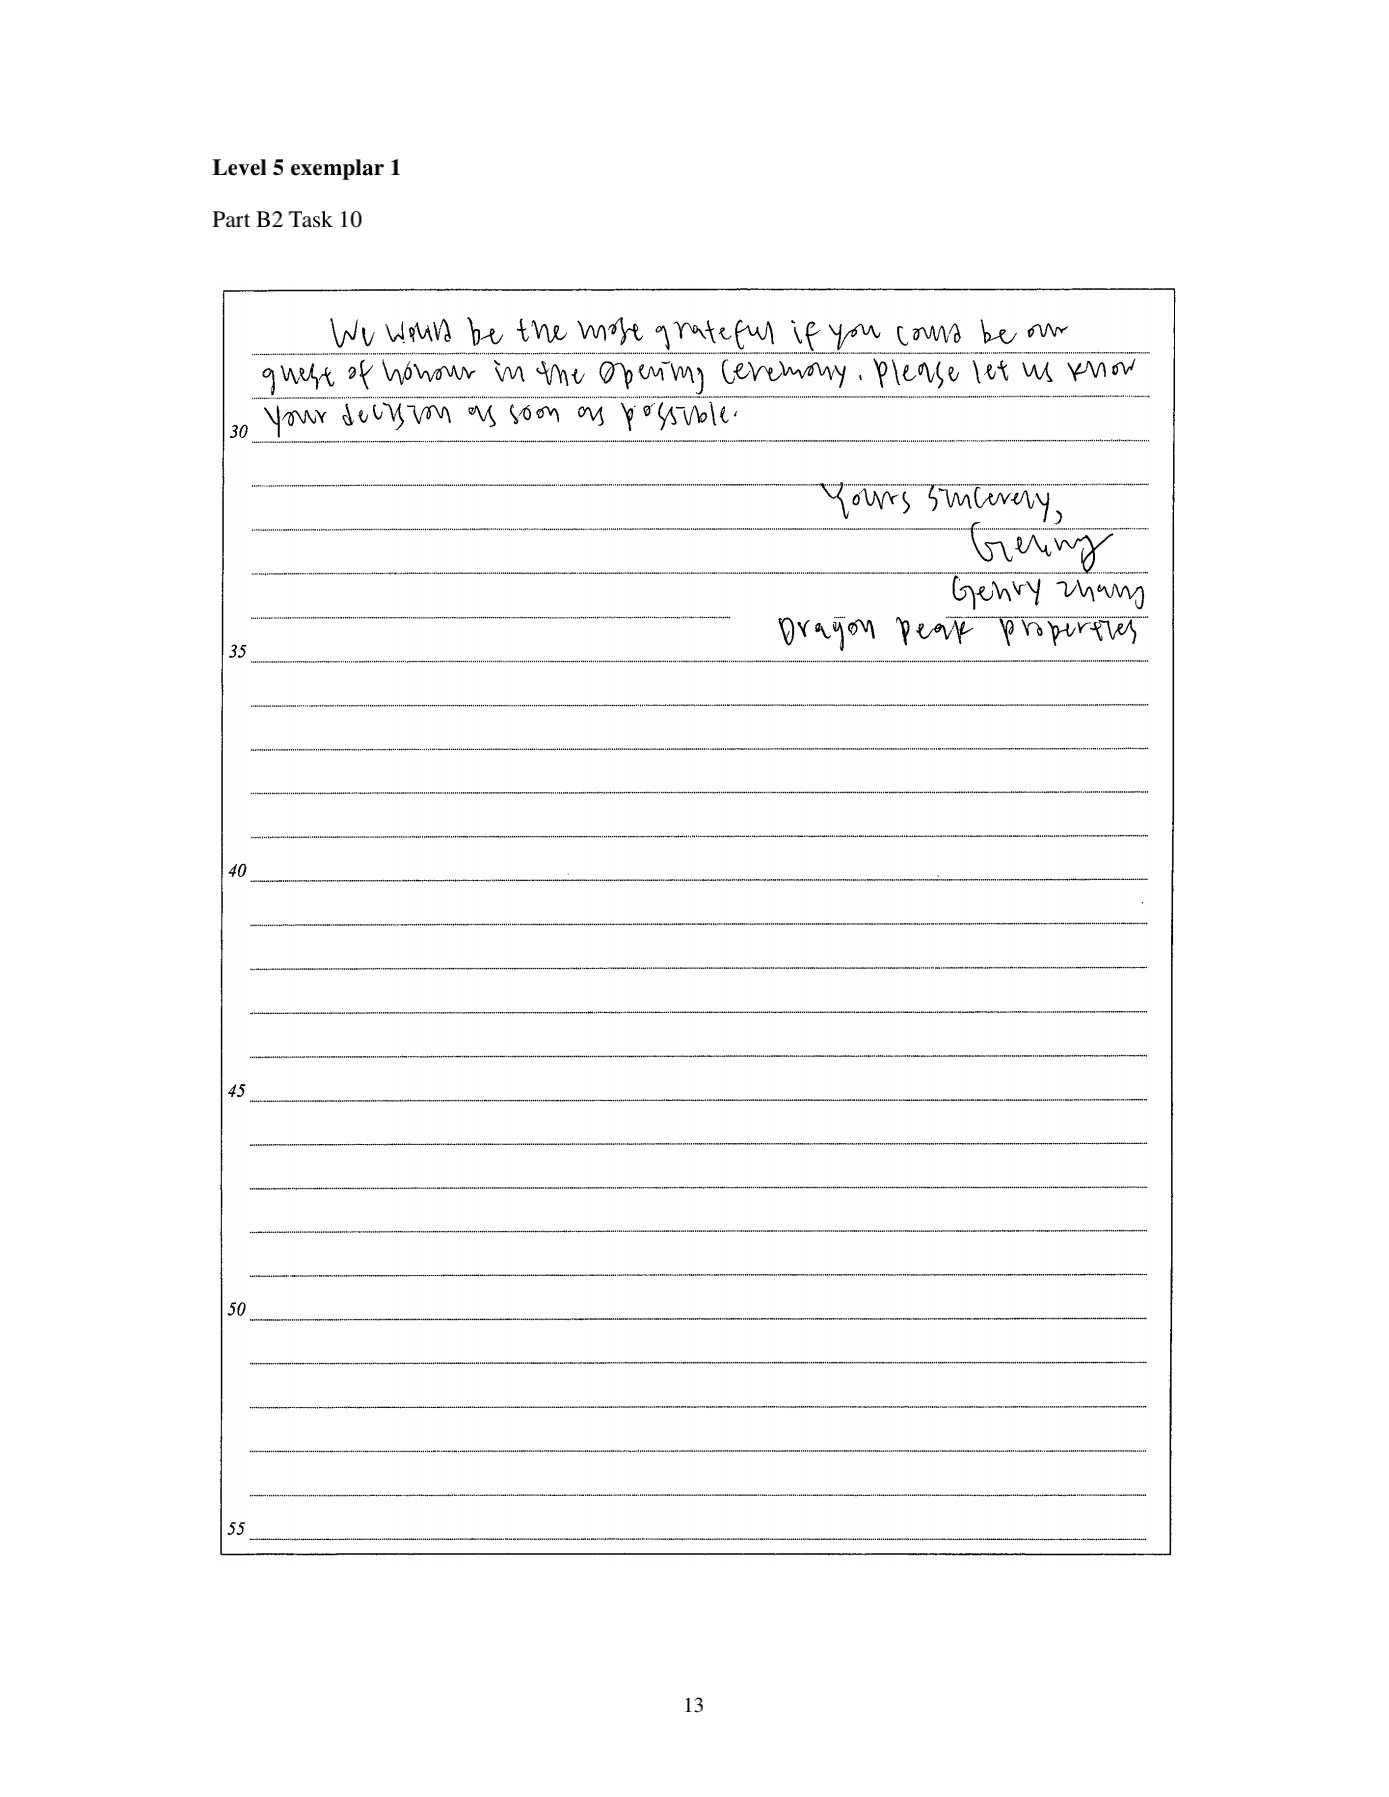 Level 5 exemplar 1
Part B2 Task 10
We would be the most grateful if you could be our
guest of honour in the Opening Ceremony. Please let us know
30 your decision as soon as possible.
Yours sincerely,
Genry Zhang
Dragon Peak Properties
35
40
45
50
55
13